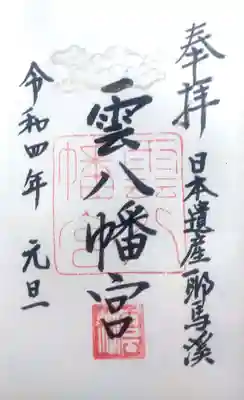 奉拝
日本遺産耶馬溪
雲八幡宮
令和四年 元旦